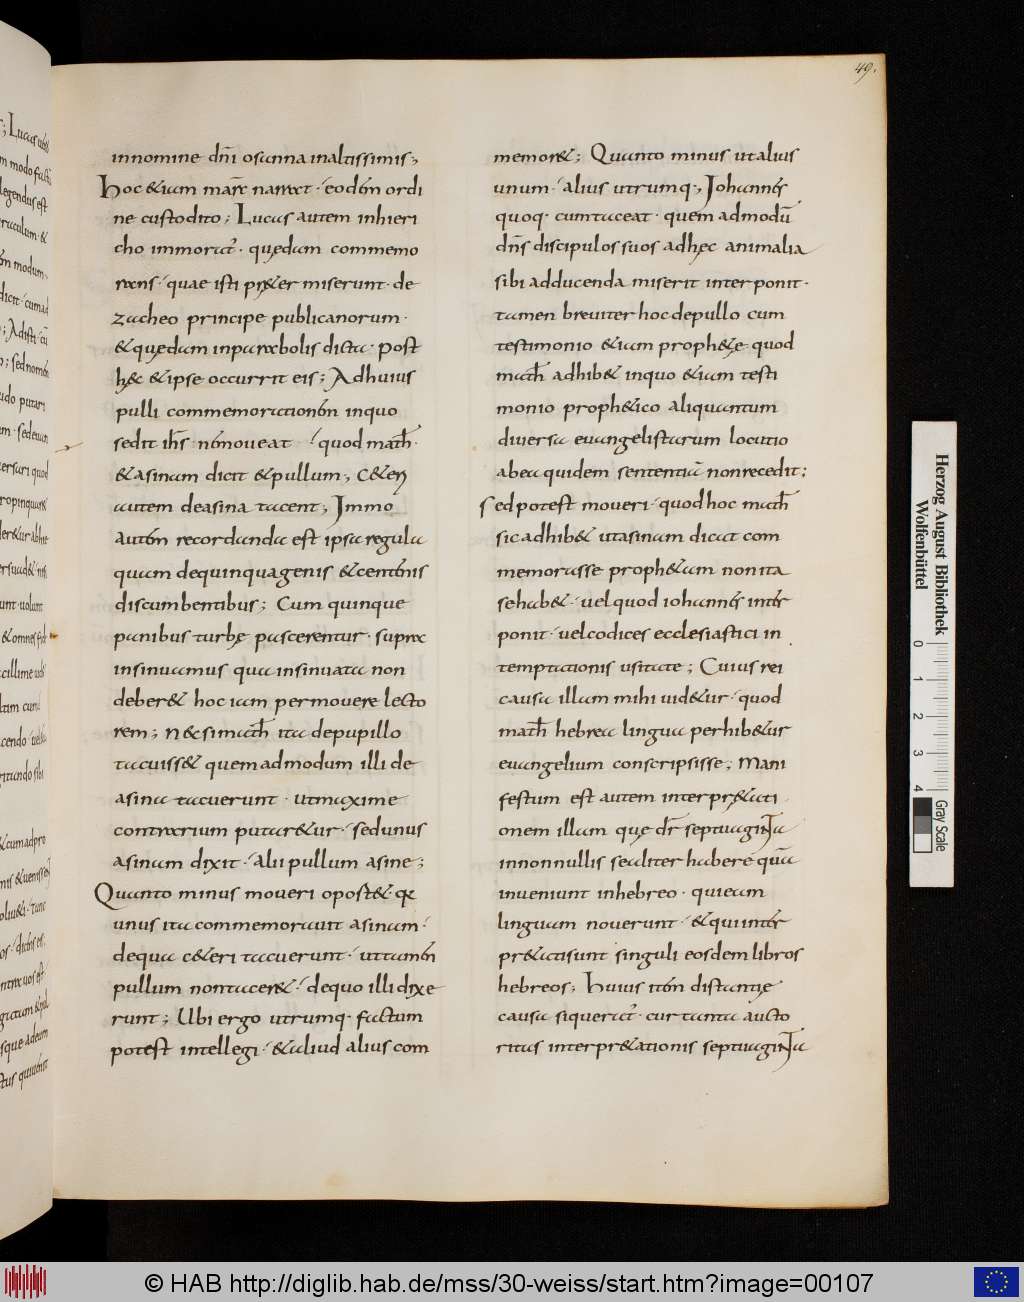 49.
innomine dn̄i osanna inaltissimis;
Hoc &iam marc̄ narrat · eodēm ordi
ne custodito; Lucas autem inhieri
cho immorat̄ · quędam commemo
rans · quae isti pr&er miserunt · de
zacheo principe publicanorum ·
& quędam inparabolis dicta · post
hęc & ipse occurrit eis; Adhuius
pulli commemorationēm inquo
sedit ih̄s nōmoueat · quod math̄ ·
& asinam dicit & pullum; C&eri
autem deasina tacent; Immo
autēm recordanda est ipsa regula
quam dequinquagenis & centēnis
discumbentibus; Cum quinque
panibus turbę pascerentur · supra
insinuamus qua insinuata non
deber& hoc iam permouere lecto
rem; N& si math̄ ita depupillo
tacuiss& quemadmodum illi de
asina tacuerunt · utmaxime
contrarium putar&ur · sed unus
asinam dixit · alii pullum asine;
Quanto minus moueri opost& qr
unus ita commemorauit asinam ·
dequa c&eri tacuerunt · uttamēn
pullum nontacer& · dequo illi dixe
runt; Ubi ergo utrumq· factum
potest intellegi · & aliud alius com
memor&; Quanto minus utalius
unum · alius utrumq·; Johannes
quoq· cumtaceat · quem admodū
dn̄s discipulos suos adhęc animalia
sibi adducenda miserit interponit ·
tamen breuiter hoc depullo cum
testimonio &iam proph&ę quod
math̄ adhib& inquo &iam testi
monio proph&ico aliquantum
diuersa euangelistarum locutio
abea quidem sententiā nonrecedit;
Sed potest moueri · quod hoc math̄
sic adhib& utasinam dicat com
memorasse proph&am nonita
sehab& · uel quod iohannes inter
ponit · uelcodices ecclesiastici in
temptationis usitate; Cuius rei
causa illam mihi uid&ur · quod
math̄ hebrea lingua perhib&ur
euangelium conscripsisse; Mani
festum est autem interpr&ati
onem illam quę dr̄ septuaginta
innonnullis sealiter habere quā
inueniunt inhebreo · quieam
linguam nouerunt · & qui inter
pr&atisunt singuli eosdem libros
hebreos; Huius itēm distantię
causa siqueratur · cur tanta aucto
ritas interpr&ationis septuaginta
Herzog August Bibliothek
Wolfenbüttel
0 1 2 3 4
Gray Scale
© HAB http://diglib.hab.de/mss/30-weiss/start.htm?image=00107